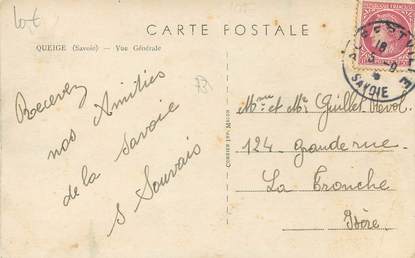 CARTE POSTALE
QUEIGE (Savoie) — Vue Générale
Recevez
nos Amitiés
de la Savoie
S Souvais
COMBIER IMP. MACON
Mr et Me Guillet Revol
124 Grande rue
La Tronche
Isère
SAVOIE